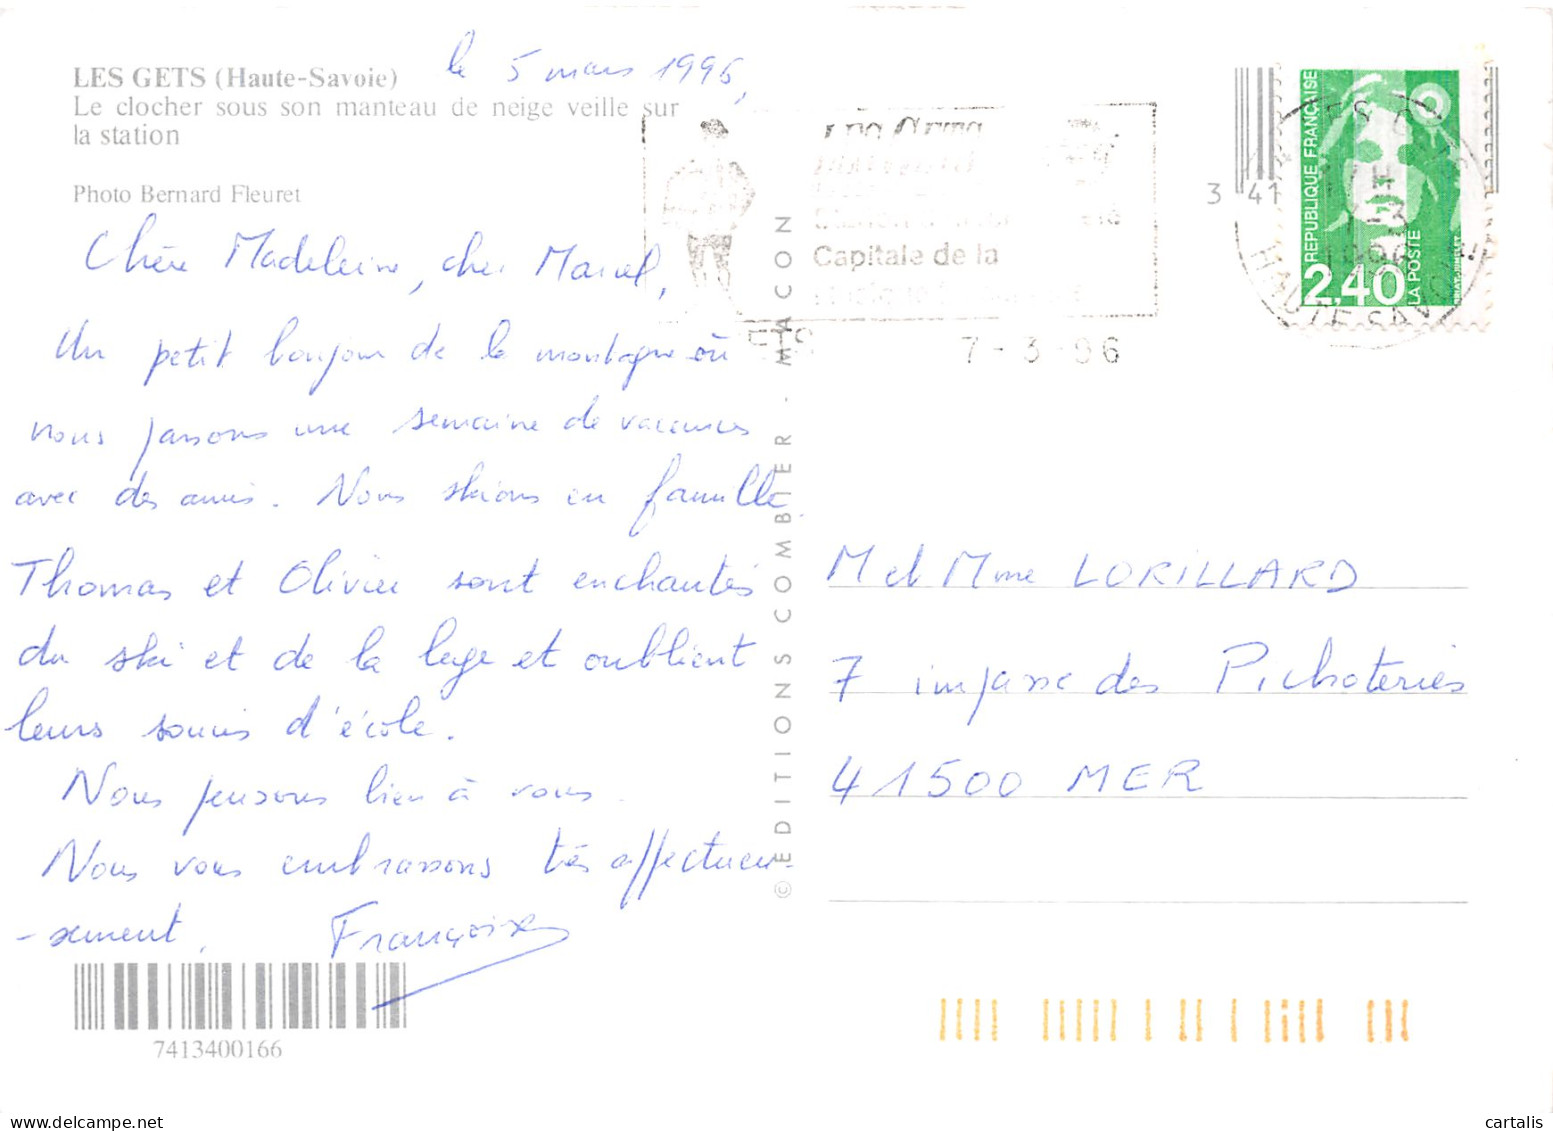 LES GETS (Haute-Savoie)
Le clocher sous son manteau de neige veille sur
la station
Photo Bernard Fleuret
le 5 mars 1996,
Chère Madeleine, cher Marcel,
Un petit bonjour de la montagne où
nous passons une semaine de vacances
avec des amis. Nous skions en famille.
Thomas et Olivier sont enchantés
du ski et de la luge et oublient
leurs soucis d'école.
Nous pensons bien à vous.
Nous vous embrassons très affectueu-
-sement. Françoise
7413400166
© EDITIONS COMBIER - MACON
Capitale de la
7-3-96
3 41
REPUBLIQUE FRANÇAISE
2,40
LA POSTE
HAUTE-SAVOIE
M et Mme LORILLARD
7 impasse des Pichoteries
41500 MER
www.delcampe.net
cartalis